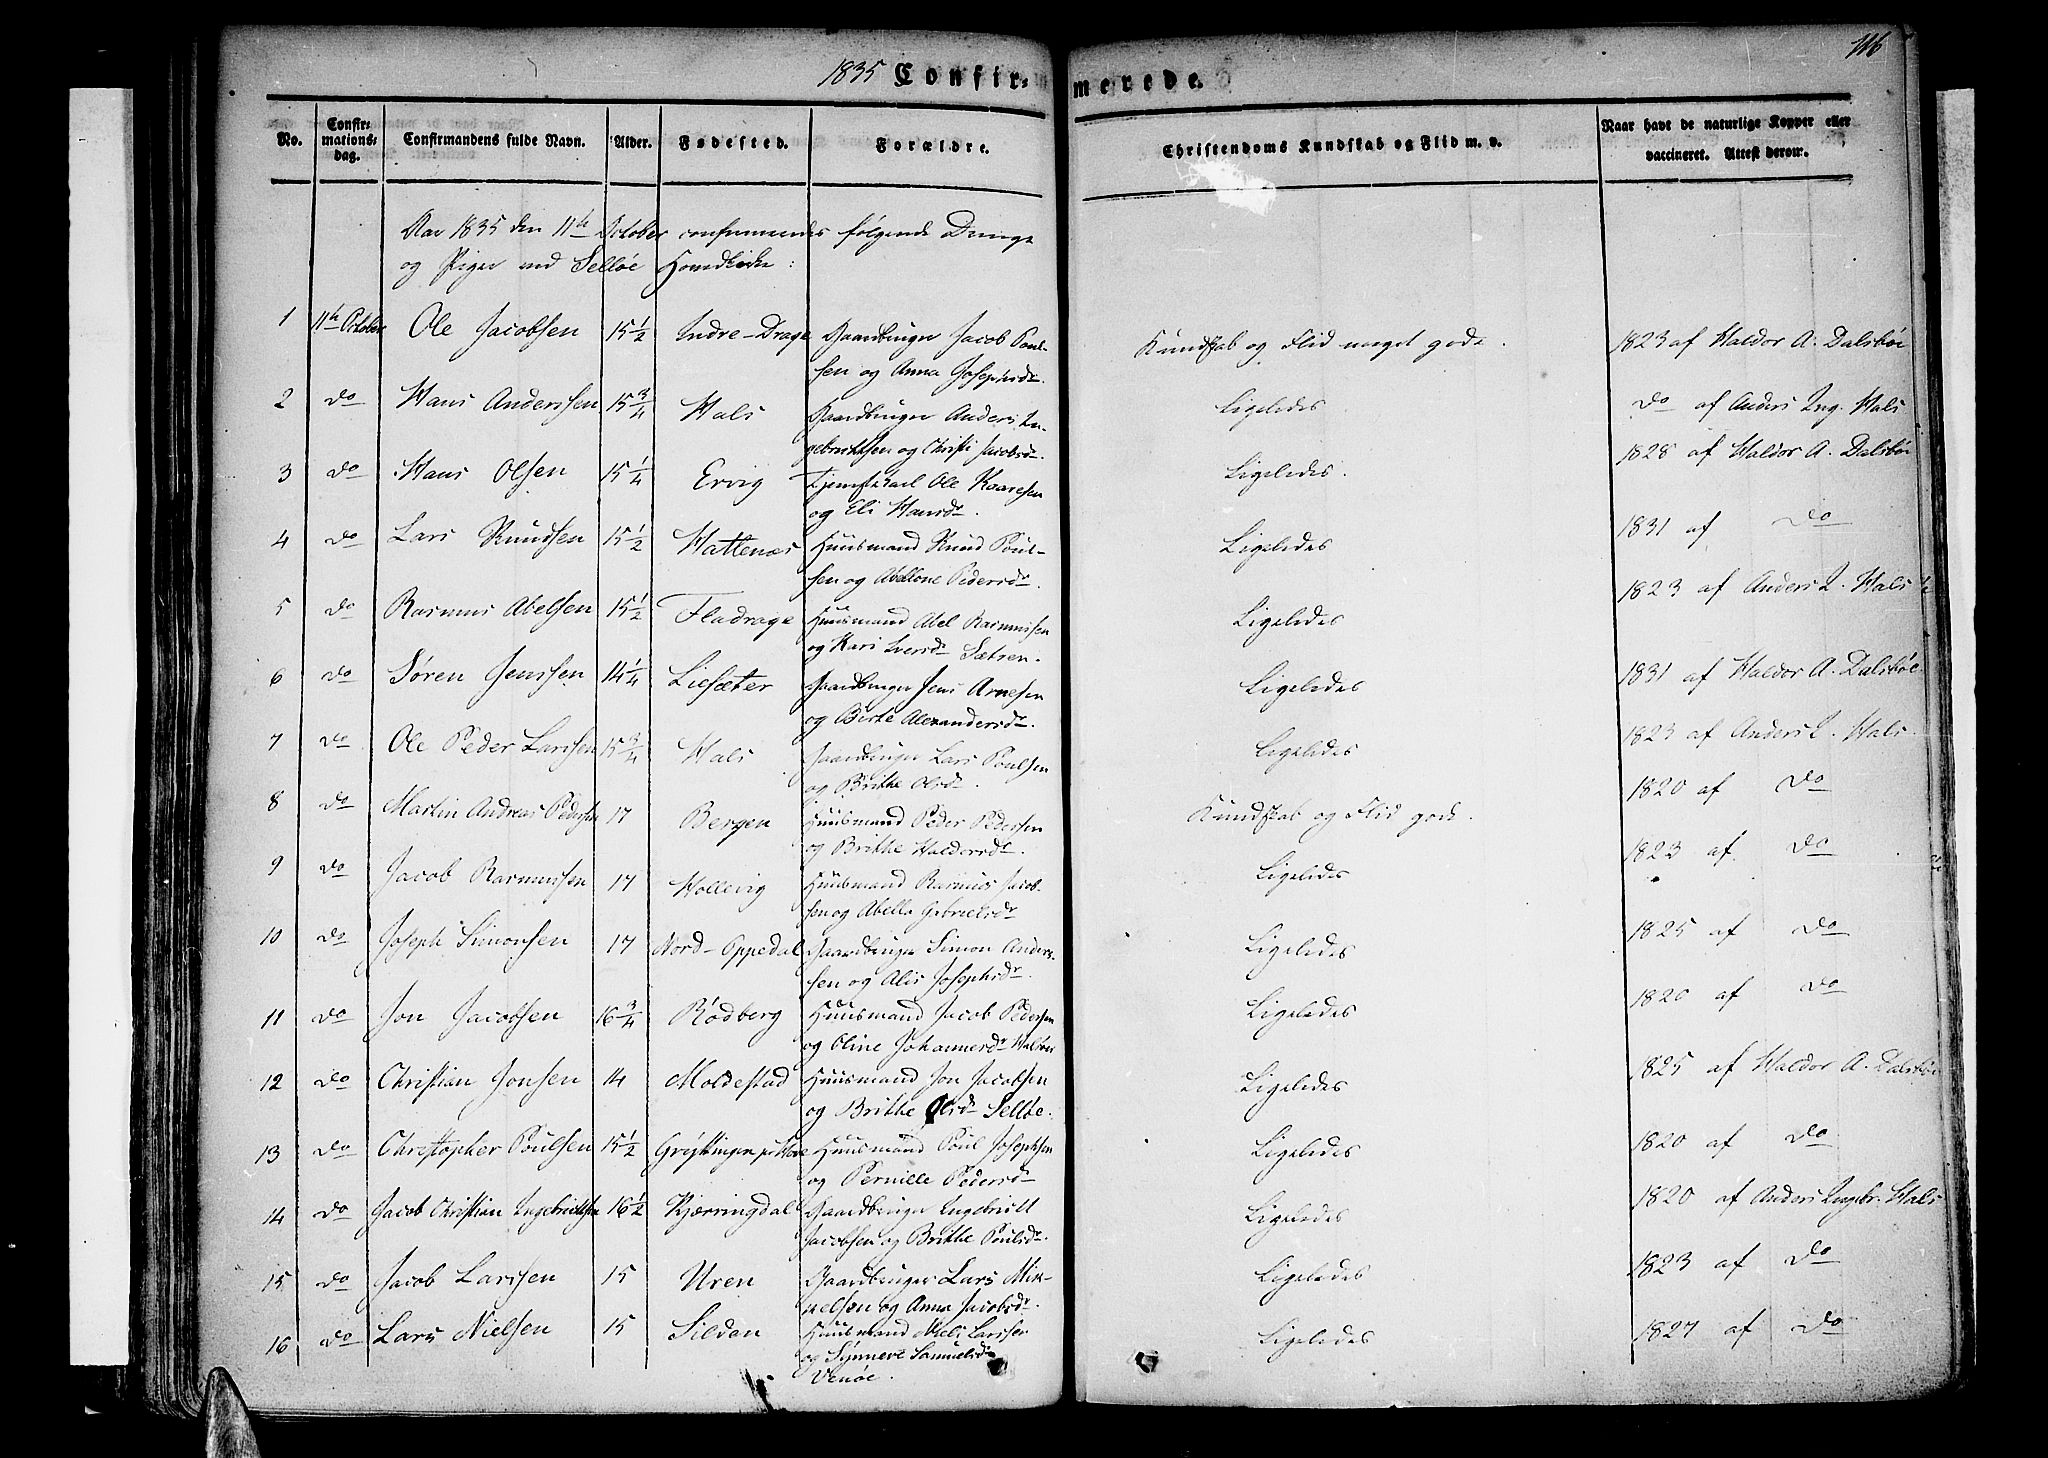 116
1835 Confir- merede.
No. Confirmationsdag. Confirmandens fulde Navn. Alder. Fødested. Forældre. Christendoms Kundskab og Flid m. v. Naar havt de naturlige Kopper eller vaccineret. Attest derom.
Aar 1835 den 11te October confirmeredes følgende Drenge
og Piger ved Selløe Hovedkirke:
1 11te October Ole Jacobsen 15 1/2 Indre-Drage Gaardbruger Jacob Poul- Kundskab og Flid meget gode. 1823 af Haldor A. Dalsbøe
sen og Anna Josephsdr.
2 do Hans Anderssen 15 3/4 Hals Gaardbruger Anders In- Ligeledes do af Anders Ing. Hals
gebrichtsen og Christi Jacobsdr.
3 do Hans Olsen 15 1/4 Ervig Tjenestekarl Ole Kaaresen Ligeledes. 1828 af Haldor A. Dalsbøe
og Eli Hansdr.
4 do Lars Knudsen 15 1/2 Hattenæs Huusmand Knud Poul- Ligeledes 1831 af do
sen og Abellone Pedersdr.
5 do Rasmus Abelsen 15 1/2 Fladrage Huusmand Abel Rasmussen Ligeledes 1823 af Anders I. Hals
og Kari Iversdr Sætren.
6 do Søren Jenssen 14 1/4 Liesæter Gaardbruger Jens Arnesen Ligeledes 1831 af Haldor A. Dalsbøe
og Birte Alexandersdr.
7 do Ole Peder Larssen 15 3/4 Hals Gaardbruger Lars Poulsen Ligeledes 1823 af Anders I. Hals.
og Brithe Olsdr.
8 do Martin Andreas Pedersen 17 Bergen Huusmand Peder Pedersen Kundskab og Flid gode. 1820 af do
og Brithe Haldorsdr.
9 do Jacob Rasmussen 17 Hollevig Huusmand Rasmus Jacob- Ligeledes 1823 af do
sen og Abella Gabrielsdr
10 do Joseph Simonsen 17 Nord-Oppedal Gaardbruger Simon Anders- Ligeledes 1825 af do
sen og Alis Josephsdr.
11 do Jon Jacobsen 16 3/4 Rødberg Huusmand Jacob Pedersen Ligeledes 1820 af do
og Oline Johannesdr
12 do Christian Jonsen 14 Moldestad Huusmand Jon Jacobsen Ligeledes 1825 af Haldor A. Dalsbøe
og Brithe Olsdr Selløe.
13 do Christopher Poulsen 15 1/2 Huusmand Poul Josephsen Ligeledes 1820 af do
og Pernille Pedersdr
14 do Jacob Christian Ingebrichtsen 16 1/2 Kjærringdal Gaardbruger Engebricht Ligeledes 1820 af Anders Ingebr. Hals
Jacobsen og Brithe Poulsdr.
15 do Jacob Larssen 15 Uren Gaardbruger Lars Mik- Ligeledes 1823 af do
kelsen og Anna Jacobsdr.
16 do Lars Nielsen 15 Silden Huusmand Niels Larssen Ligeledes 1827 af do
og Synneve Samuelsdr
Venøe.